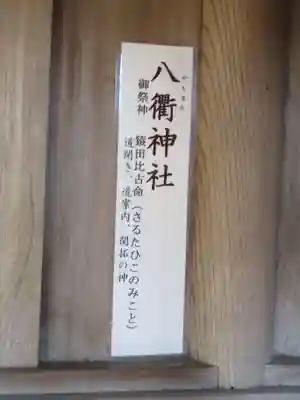 やちまた
八衢神社
御祭神　猿田比古命(さるたひこのみこと)
道開き、道案内、開拓の神